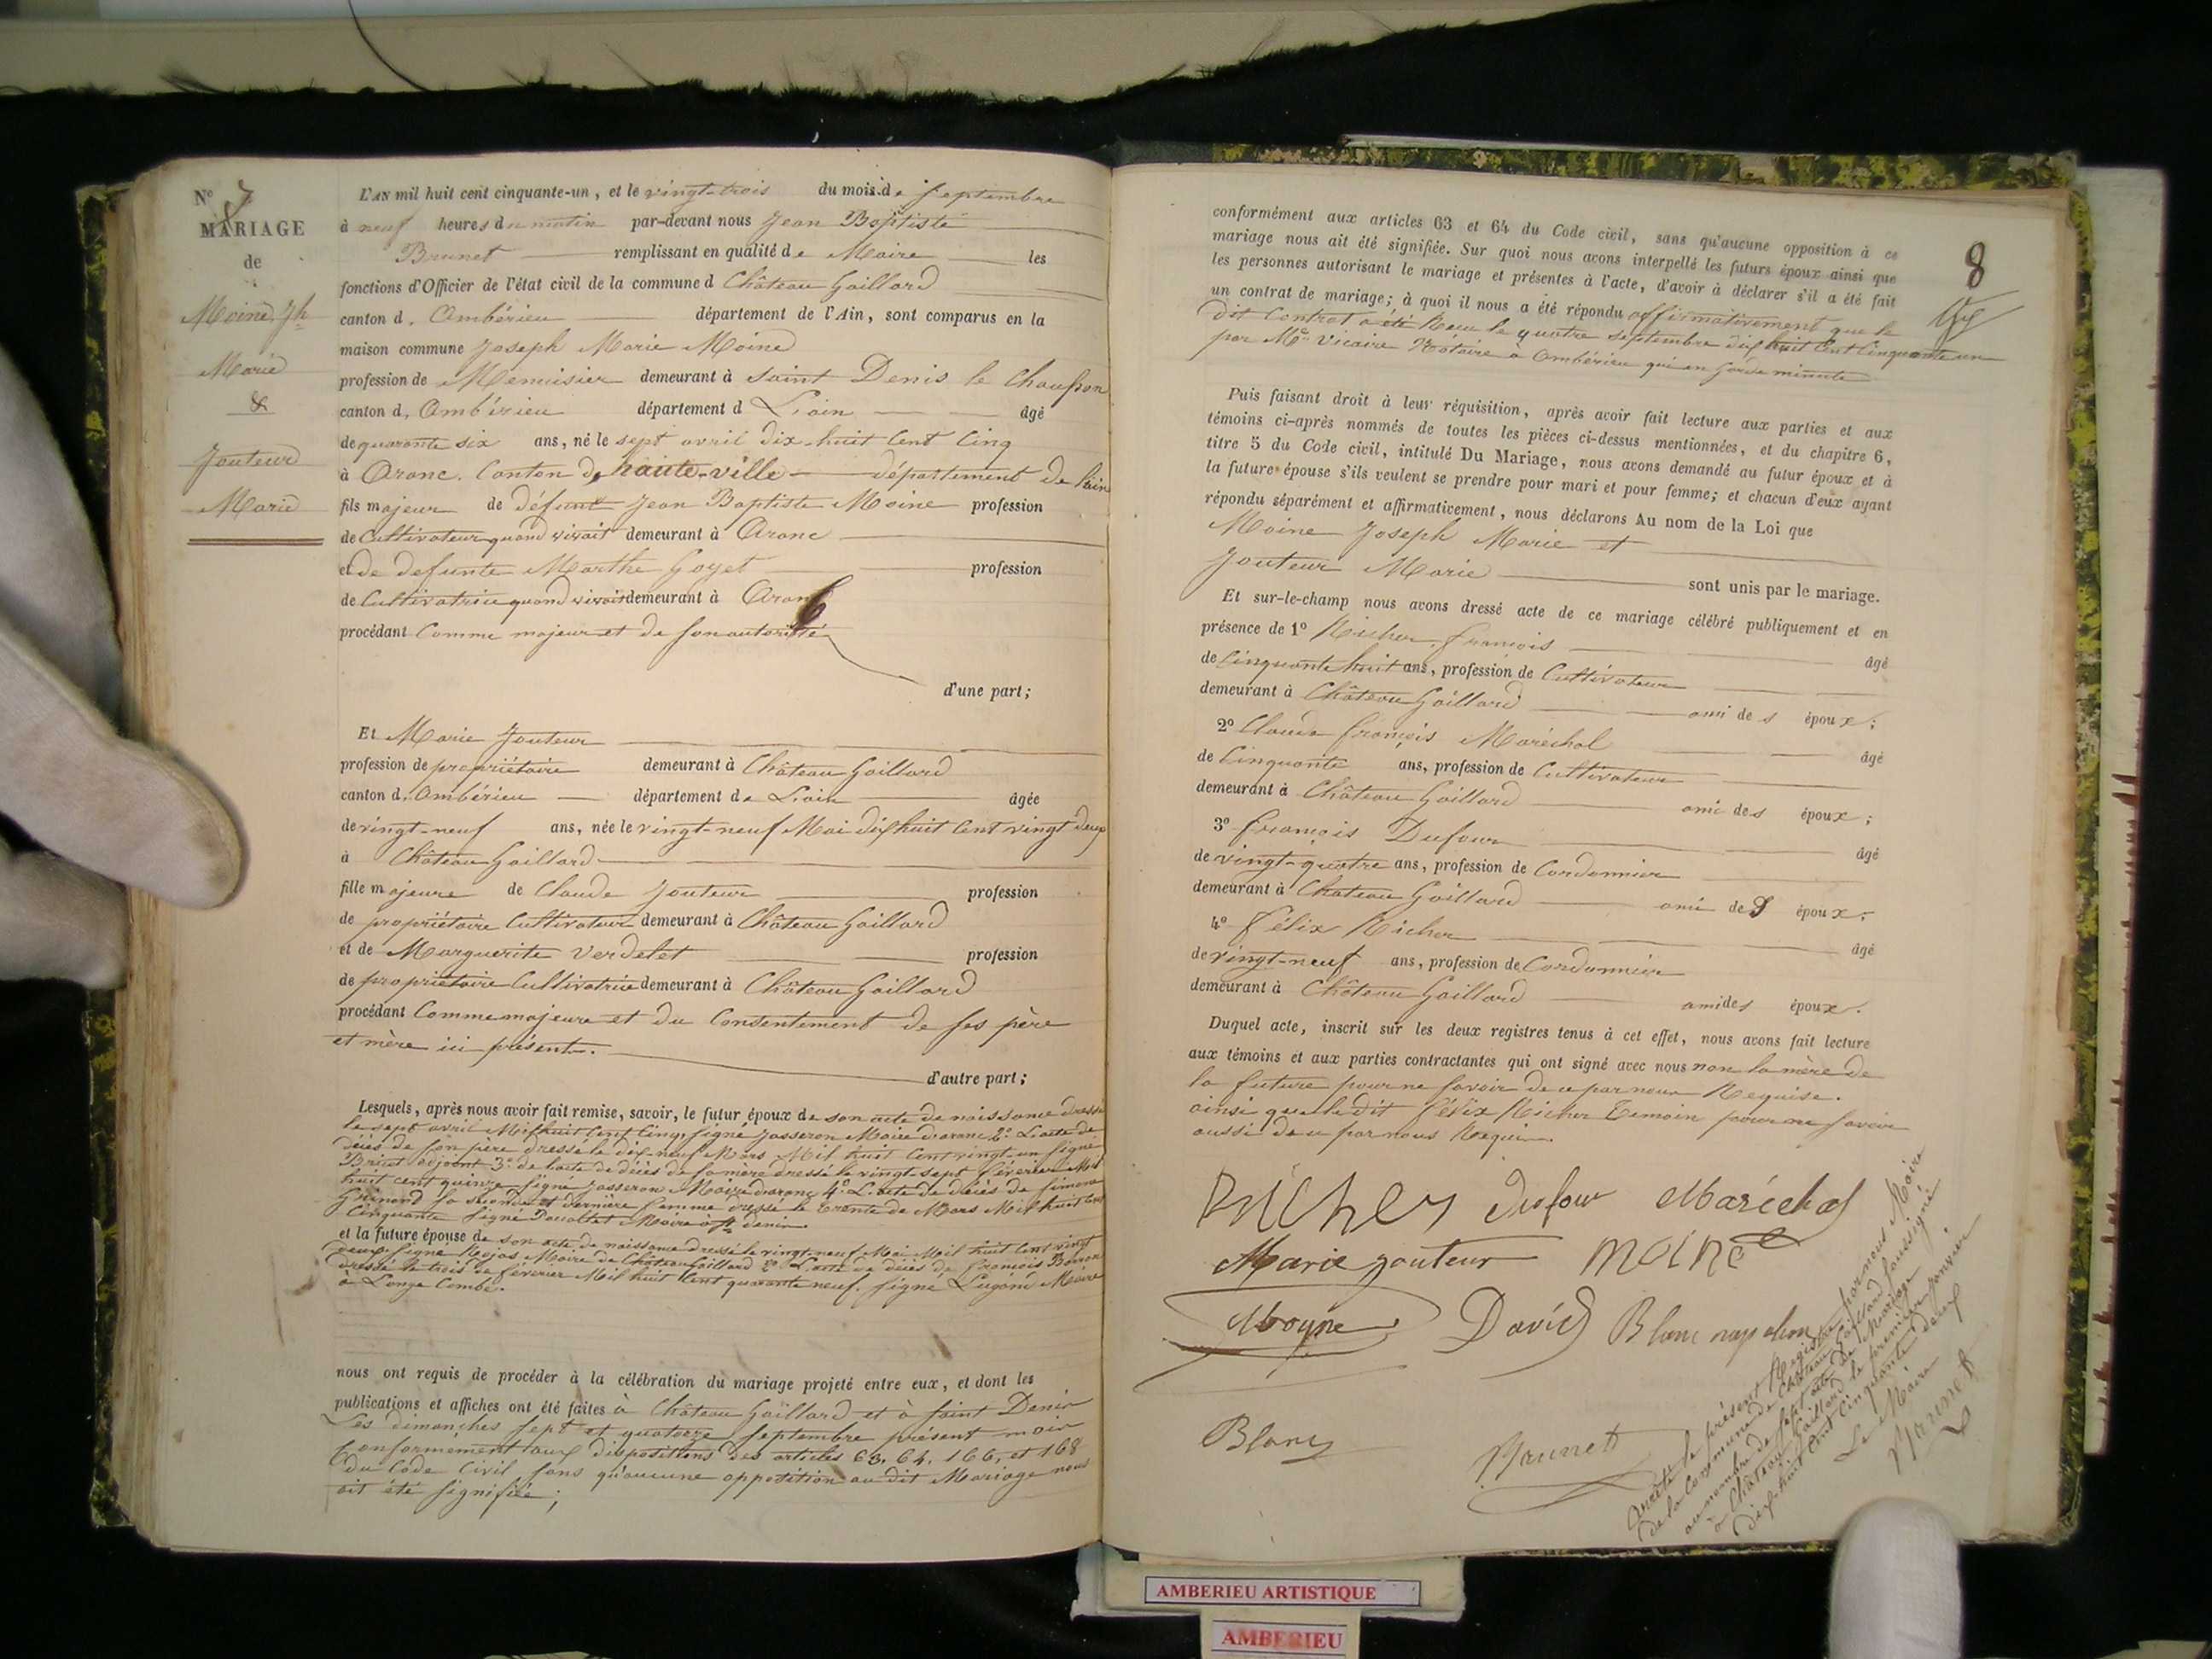 N° 7
MARIAGE
de
Moine Jh
Marie
&
Jouteur
Marie
L'AN mil huit cent cinquante-un, et le vingt-trois du mois de septembre
à neuf heures du matin par-devant nous Jean Baptiste
Brunet remplissant en qualité de Maire les
fonctions d'Officier de l'état civil de la commune d Château Gaillard
canton d. Ambérieu département de l'Ain, sont comparus en la
maison commune Joseph Marie Moine
profession de Menuisier demeurant à Saint Denis le Chausson
canton d. Ambérieu département d L'ain âgé
de quarante six ans, né le sept avril dix huit Cent Cinq
à Aranc. Canton de haute-ville département de l'ain
fils majeur de défunt Jean Baptiste Moine profession
de Cultivateur quand vivait demeurant à Aranc
et de defunte Marthe Goyet profession
de Cultivatrice quand vivait demeurant à Aranc
procédant Comme majeur et de son autorité
d'une part;
Et Marie Jouteur
profession de propriétaire demeurant à Château Gaillard
canton d. Ambérieu département de L'ain âgée
de vingt-neuf ans, née le vingt-neuf Mai dix huit Cent vingt deux
à Château Gaillard
fille majeure de Claude Jouteur profession
de propriétaire Cultivateur demeurant à Château Gaillard
et de Marguerite Verdelet profession
de propriétaire Cultivatrice demeurant à Château Gaillard
procédant Comme majeure et du Consentement de ses père
et mère ici présents.
d'autre part;
Lesquels, après nous avoir fait remise, savoir, le futur époux de son acte de naissance dressé
le sept avril Mil huit Cent Cinq, signé Jasseron Maire d'aranc 2° L'acte de
décès de son père dressé le dix-neuf Mars Mil huit Cent vingt-un signé
adjoint 3° de l'acte de décès de sa mère dressé le vingt-sept février Mil
huit cent quinze signé Jasseron Maire d'aranc 4° L'acte de décès de Simone
sa seconde et dernière femme dressé le trente de Mars Mil huit Cent
Cinquante signé Maire à St denis
et la future épouse de son acte de naissance dressé le vingt-neuf Mai Mil huit Cent vingt
deux. signé Maire de Château Gaillard 2° L'acte de décès de françois
dressé le trois de février Mil huit Cent quarante neuf. signé Maire
à Longe Combe.
nous ont requis de procéder à la célébration du mariage projeté entre eux, et dont les
publications et affiches ont été faites à Château Gaillard et à Saint Denis
Les dimanches sept et quatorze septembre présent mois
Conformément aux dispositions des articles 63, 64, 166, et 168
du Code Civil sans qu'aucune opposition au dit Mariage nous
ait été signifiée;
8
conformément aux articles 63 et 64 du Code civil, sans qu'aucune opposition à ce
mariage nous ait été signifiée. Sur quoi nous avons interpellé les futurs époux ainsi que
les personnes autorisant le mariage et présentes à l'acte, d'avoir à déclarer s'il a été fait
un contrat de mariage; à quoi il nous a été répondu affirmativement que le
dit Contrat a été Recu le quatre septembre dix huit Cent Cinquante un
par Me Vicaire Notaire à Ambérieu qui en garde minute
Puis faisant droit à leur réquisition, après avoir fait lecture aux parties et aux
témoins ci-après nommés de toutes les pièces ci-dessus mentionnées, et du chapitre 6,
titre 5 du Code civil, intitulé Du Mariage, nous avons demandé au futur époux et à
la future épouse s'ils veulent se prendre pour mari et pour femme; et chacun d'eux ayant
répondu séparément et affirmativement, nous déclarons Au nom de la Loi que
Moine Joseph Marie et
Jouteur Marie sont unis par le mariage.
Et sur-le-champ nous avons dressé acte de ce mariage célébré publiquement et en
présence de 1° Richer françois âgé
de Cinquante huit ans, profession de Cultivateur
demeurant à Château Gaillard ami des époux;
2° Claude françois Maréchal âgé
de Cinquante ans, profession de Cultivateur
demeurant à Château Gaillard ami des époux;
3° françois Dufour âgé
de vingt-quatre ans, profession de Cordonnier
demeurant à Chateau Gaillard ami des époux;
4° félix Richer âgé
de vingt-neuf ans, profession de Cordonnier
demeurant à Château Gaillard ami des époux.
Duquel acte, inscrit sur les deux registres tenus à cet effet, nous avons fait lecture
aux témoins et aux parties contractantes qui ont signé avec nous non la mère de
la future pour ne savoir de ce par nous Requise.
ainsi que le dit félix Richer Temoin pour ne savoir
aussi de ce par nous Requis
Richer Dufour Maréchal
Marie jouteur moine
Moyne David Blanc napoleon
Blanc Brunet
Arrêté le présent Registre par nous Maire
de la Commune de Château Gaillard soussigné
au nombre de sept actes de Mariage
à Château Gaillard le premier janvier
dix-huit Cent Cinquante deux
Le Maire
Brunet
AMBERIEU ARTISTIQUE
AMBERIEU